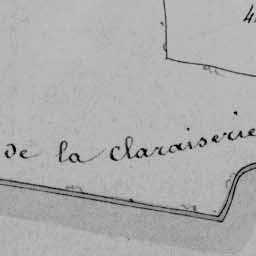 de la claraiserie